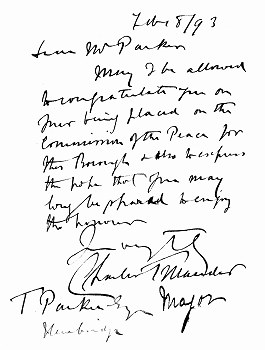 Feb 8/93
Dear Mr Parker
May I be allowed
to congratulate you on
your being placed on the
Commission of the Peace for
this Borough & also to express
the hope that you may
long be spared to enjoy
the honour
Charles T Mander
T. Parker Esq Mayor